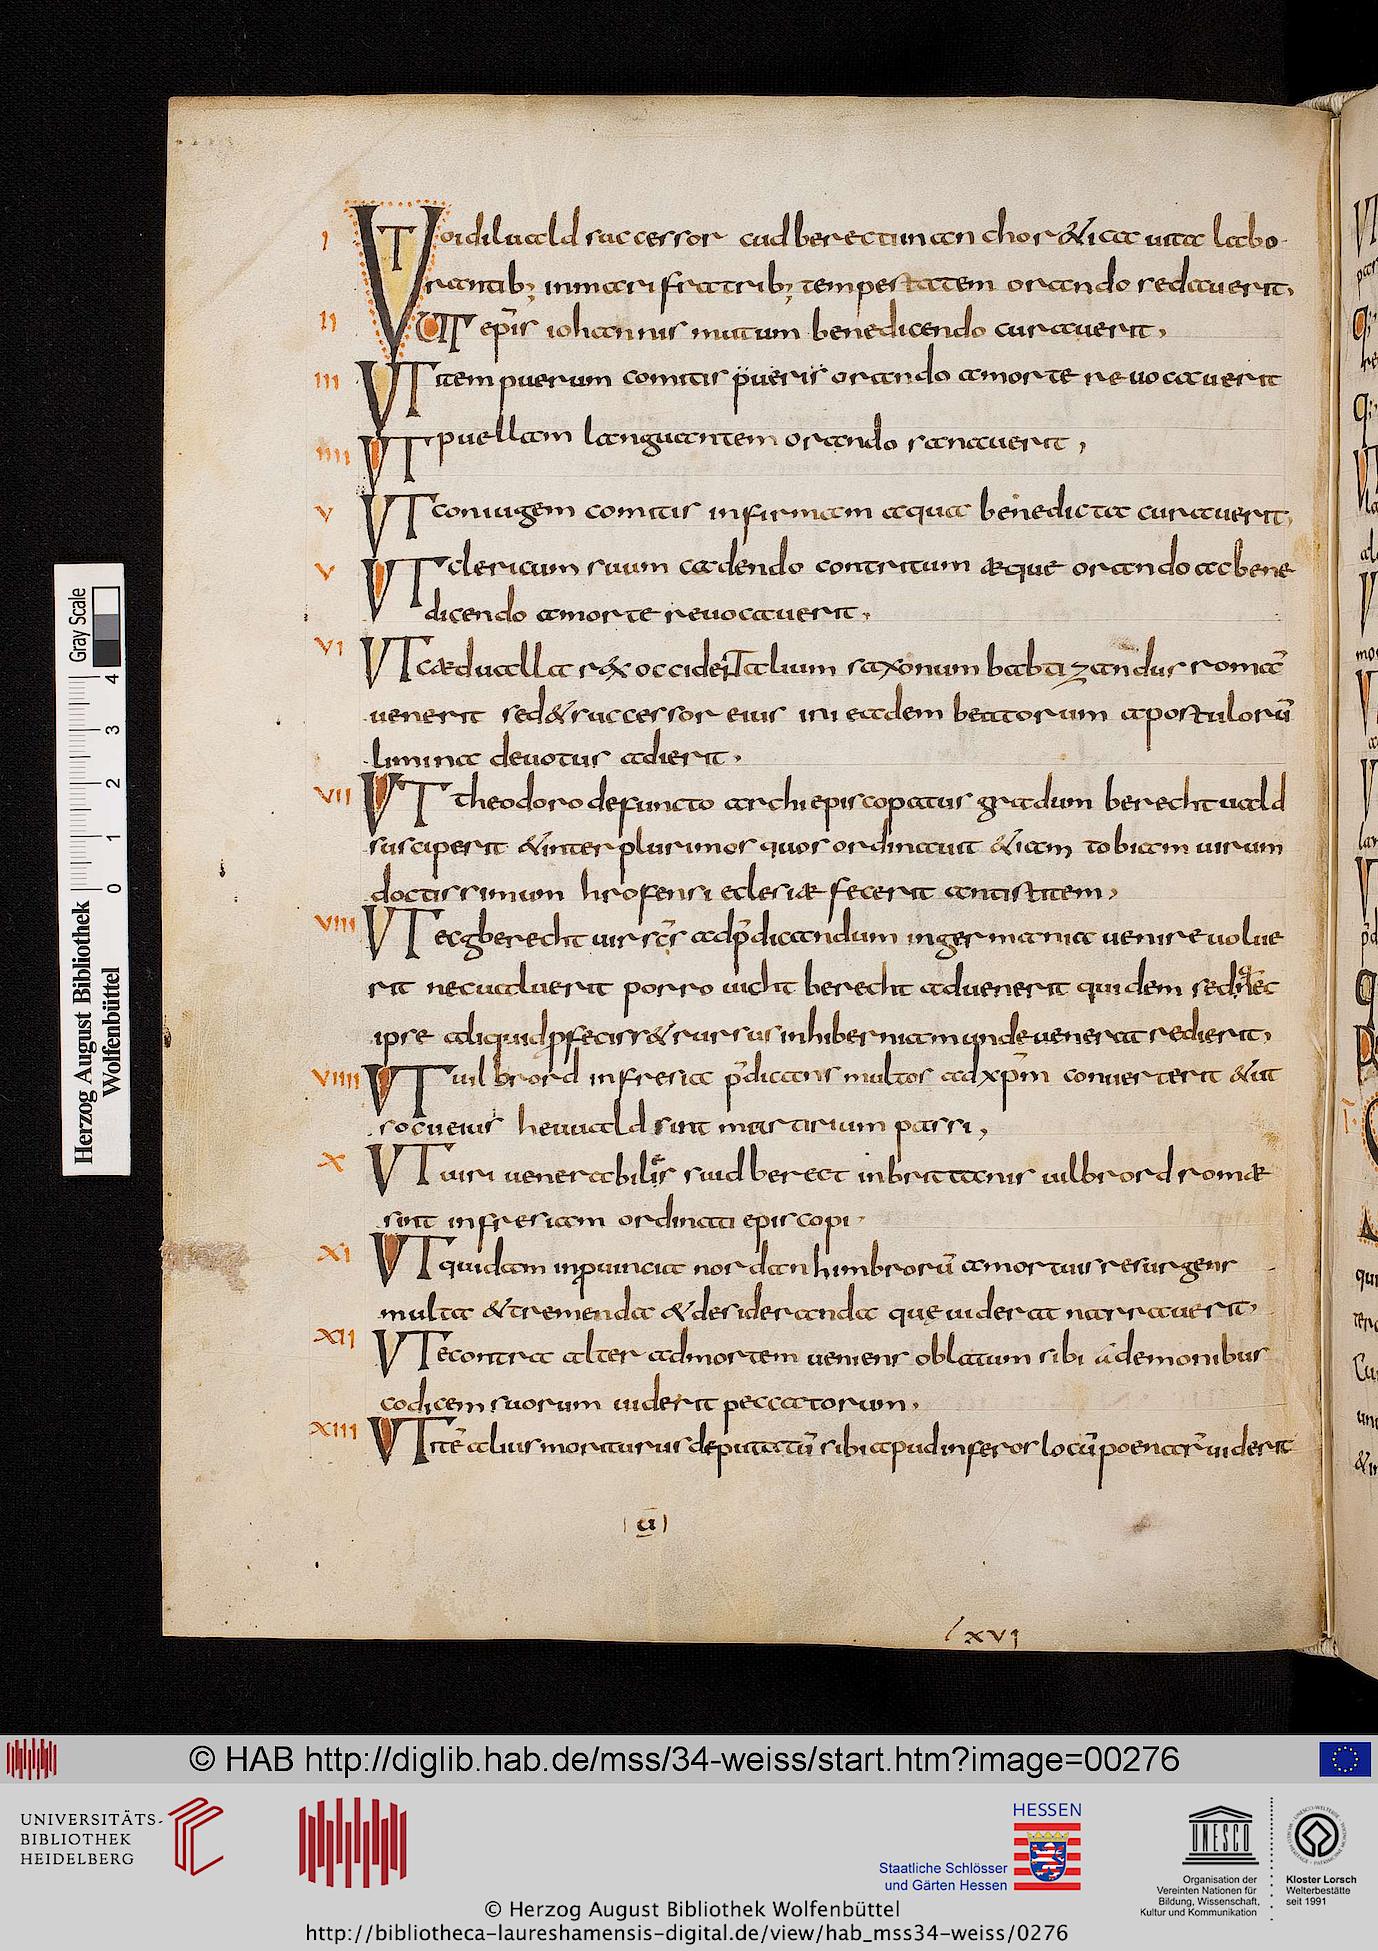 I VT oidiluald successor cudberecti in anchor&ica uita labo
rantib; in mari fratrib; tempestatem orando sedauerit,
II UT ep̄is iohannis mutum benedicendo curauerit,
III VT item puerum comitis pueris orando a morte reuocauerit
IIII VT puellam languantem orando sanauerit,
V VT coniugem comitis infirmam aqua benedicta curauerit,
V VT clericum suum cadendo contritum æque orando ac bene
dicendo a morte reuocauerit,
VI VT cædualla rex occidentalium saxonum babtizandus romā
uenerit sed & successor eius ini eadem beatorum apostulorū
limina deuotus adierit,
VII VT theodoro defuncto archiepiscopatus gradum berechtuald
susciperit & inter plurimos quos ordinauit &iam tobiam uirum
doctissimum hrofensi eclesiæ fecerit antistitem,
VIII VT ecgberecht uir sc̄s ad p̄dicandum in germania uenire uolue
rit nec ualuerit porro uicht berecht aduenerit quidem sed nec
ipse aliquid pfeciss& rursus in hiberniam unde uenerat redierit,
VIIII VT uilbrord in fresia p̄dicans multos ad xp̄m conuerterit & ut
socii eius heuuald sint martirium passi,
X VT uiri uenerabilis suidberect in brittanis uilbrord romæ
sint in fresiam ordinati episcopi
XI VT quidam in puincia nordanhimbrorū a mortuis resurgens
multa & tremenda & desideranda quę uiderat narrauerit,
XII VT econtra alter ad mortem ueniens oblatum sibi a demonibus
codicem suorum uiderit peccatorum,
XIII VT itē alius moriturus deputatū sibi apud inferos locū poenarū uiderit
ū
lxvi
Herzog August Bibliothek
Wolfenbüttel
0 1 2 3 4
Gray Scale
© HAB http://diglib.hab.de/mss/34-weiss/start.htm?image=00276
UNIVERSITÄTS-
BIBLIOTHEK
HEIDELBERG
HESSEN
Staatliche Schlösser
und Gärten Hessen
UNESCO
Organisation der
Vereinten Nationen für
Bildung, Wissenschaft,
Kultur und Kommunikation
Kloster Lorsch
Welterbestätte
seit 1991
© Herzog August Bibliothek Wolfenbüttel
http://bibliotheca-laureshamensis-digital.de/view/hab_mss34-weiss/0276